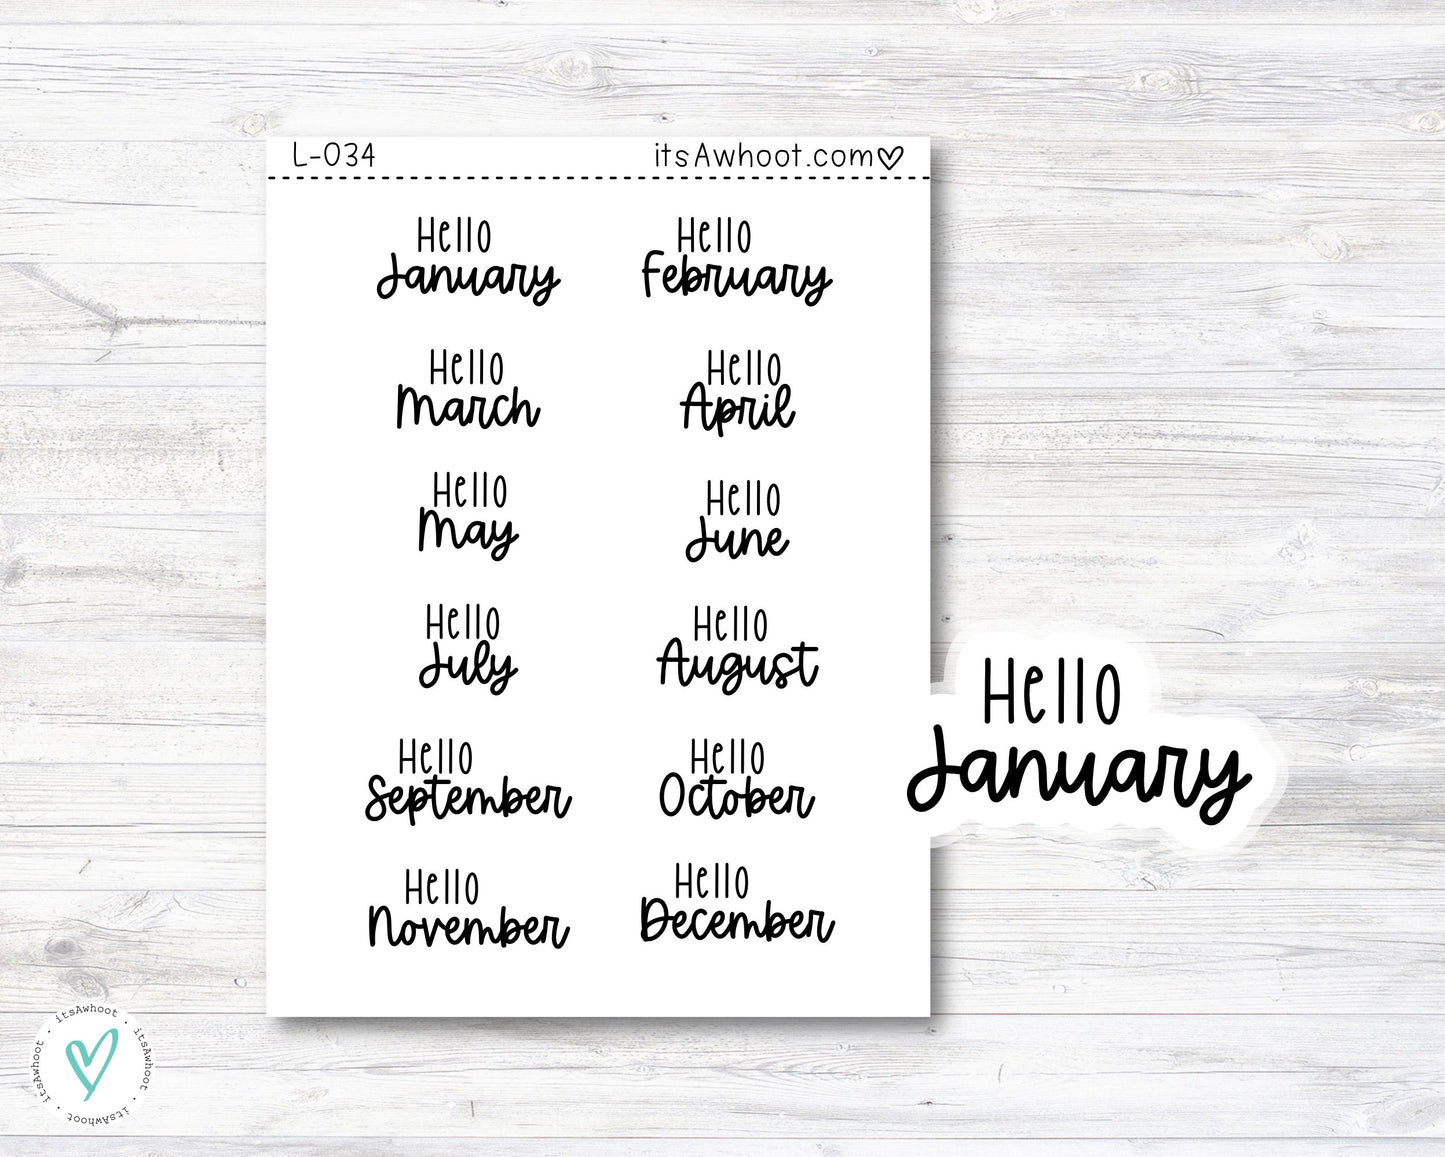 L-034
itsAwhoot.com♡
Hello
January
Hello
February
Hello
March
Hello
April
Hello
May
Hello
June
Hello
July
Hello
August
Hello
September
Hello
October
Hello
November
Hello
December
Hello
January
itsAwhoot · itsAwhoot · itsAwhoot · itsAwhoot ·